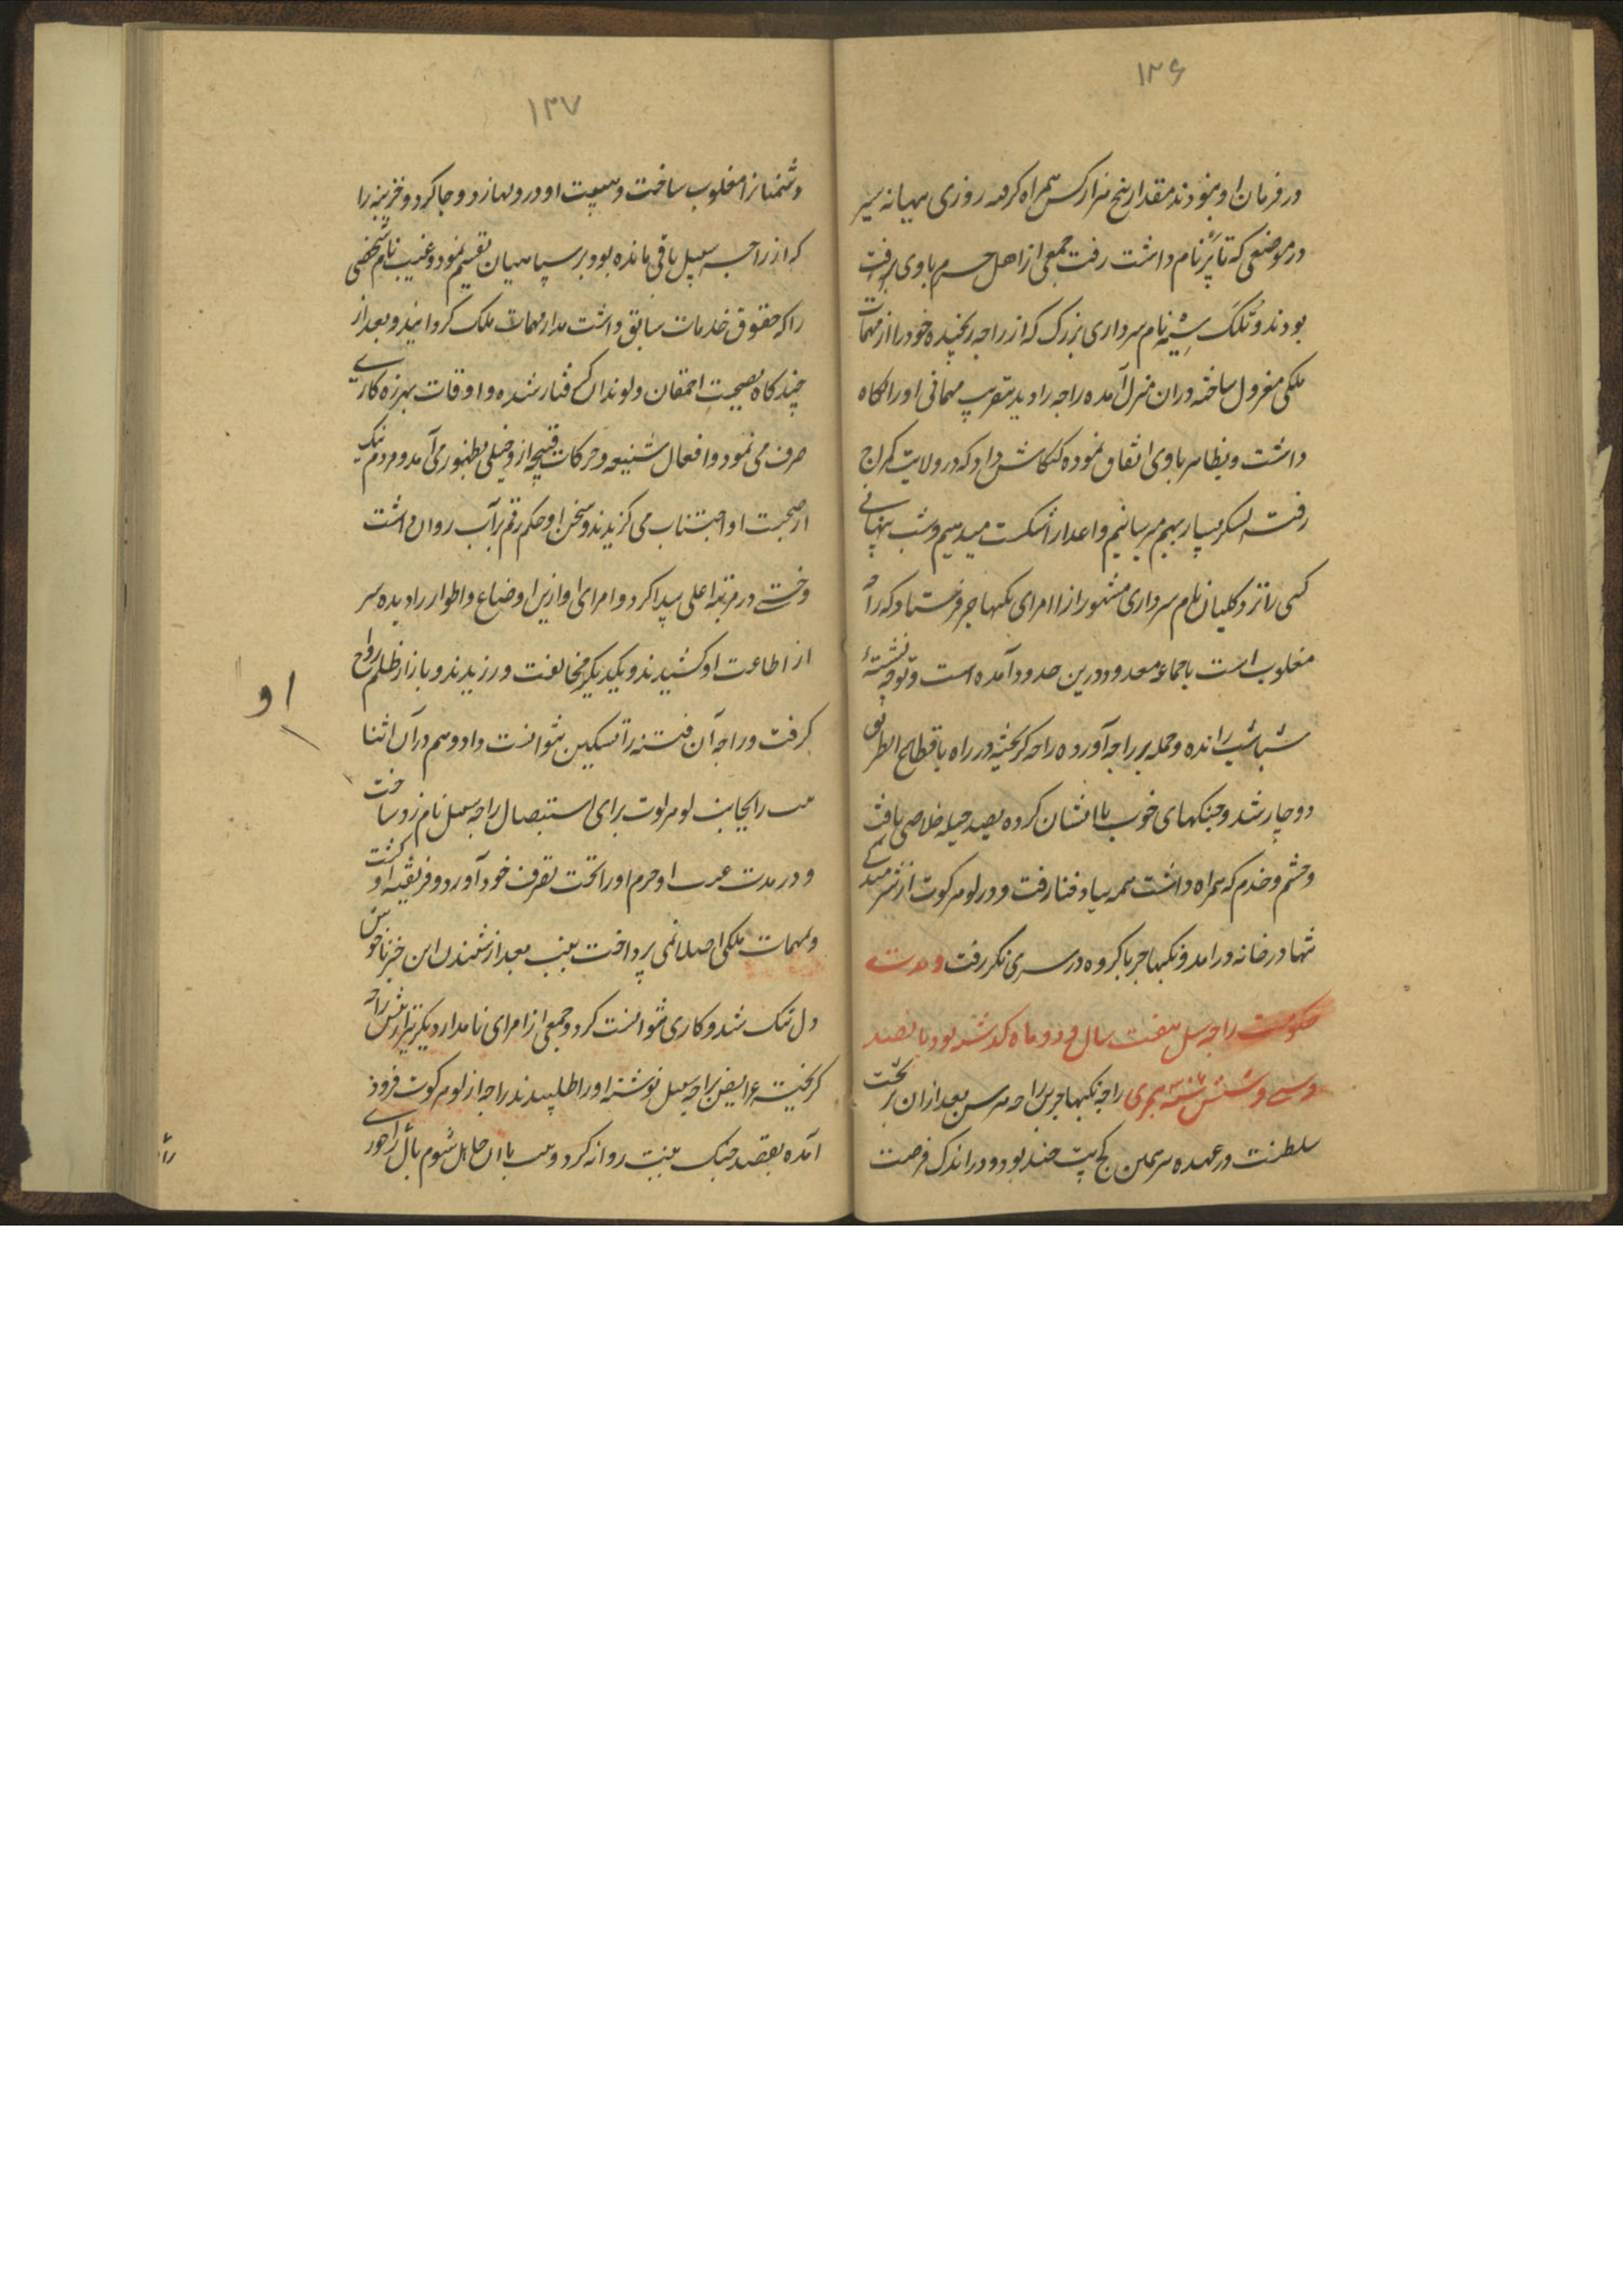 ۱۳۶
در فرمان او بودند مقدار پنج هزار کس همراه کرفته روزی ببهانه سیر
در موضعی که تاپر نام داشت رفت جمعی از اهل حرم باوی رفت
بودند و تلک سینه نام سرداری بزرک که از راجه رنجیده خود را از مهمات
ملکی معزول ساخته دران منزل آمده راجه را دید بتقریب مهمانی او را نکاه
داشت و بظاهر باوی اتفاق نموده کنکاش داد که در ولایت کمراج
رفته لشکر بسیار بهم میرسانیم و اعدا را شکست میدهیم و شب پنهانی
کسی را نزد کلیان نام سرداری مشهور از امرای بکهاجر فرستاد که راجه
مغلوب است با جماعه معدود درین حدود آمده است و توجه
شباشب رانده و حمله بر راجه آورده راجه کریخته در راه با قطاع الطریق
دوچار شد و جنکهای خوب با ایشان کرده بصد حیله خلاصی یافت
و حشم و خدم که همراه داشت همه بباد فنا رفت و در لوهرکوت از شرمندکی
تنها در خانه درامد و بکهاجر باکروه در سری نکر رفت و مدت
حکومت راجه سسل هفت سال و دو ماه کذشته بود پانصد
وسی و شش سنه هجری راجه بکهاجر بن راجه هرس بعد ازان بر تخت
سلطنت در عهده سر سملن کج پت چند بود و در اندک فرصت
۱۳۷
دشمنانرا مغلوب ساخت و هیبت او در دلها زد و جا کرد و خزینه را
که از راجه سسل باقی مانده بود بر سپاهیان تقسیم نمود و غیب نام شخصی
را که حقوق خدمات سابق داشت مدار مهمات ملک کردانید و بعد از
چند کاه بصحبت احمقان و لوندان کرفتار شده و اوقات بهرزه کاری
صرف می نمود و افعال شنیعه و حرکات قبیحه از و خیلی بظهور می آمد و مردم نیک
از صحبت او اجتناب می کزیدند و سخن او حکم رقم بر آب روان داشت
وختی در مرتبه اعلی پیدا کرد و امرای او ازین اوضاع و اطوار را دیده سر
از اطاعت او کشیدند و بیکدیکر مخالفت ورزیدند و بازار ظلم رواج
کرفت و راجه آن فتنه را تسکین نتوانست داد و هم در آن اثنا
را بجانب لوهرکوت برای استیصال راجه سسل نامزد ساخت
و در مدت غیبت او حرم او را تحت تصرف خود آورد و فریفته او کشت
و بمهمات ملکی اصلا نمی پرداخت غیب بعد از شنیدن این خبر ناخوش
دل تنک شد و کاری نتوانست کرد و جمعی از امرای نامدار دیکر نیز از پیش راجه
کریخته عرایض براجه سسل نوشته او را طلبیدند راجه از لوهرکوت فرود
آمده بقصد جنک غیب روانه کرد و
او
را